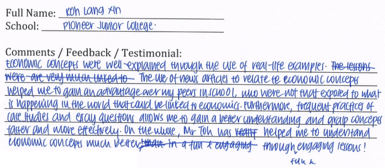 Full Name: Koh Lang Xin
School: Pioneer Junior College.
Comments / Feedback / Testimonial:
Economic concepts were well explained through the use of real-life examples. The lessons
were are very much linked to The use of news articles to relate to economic concepts
helped me to gain an advantage over my peers in school, who were not that exposed to what
is happening in the world that could be linked to economics. Furthermore, frequent practices of
case studies and essay questions allows me to gain a better understanding and grasp concepts
faster and more effectively. On the whole, Mr Toh has helped me to understand
economic concepts much better in a fun & engaging through engaging lessons!
fun &